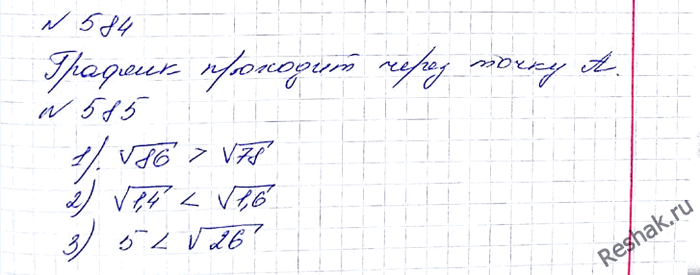 № 584
График проходит через точку А.
№ 585
1). √86 > √78
2) √1,4 < √1,6
3) 5 < √26
Reshak.ru